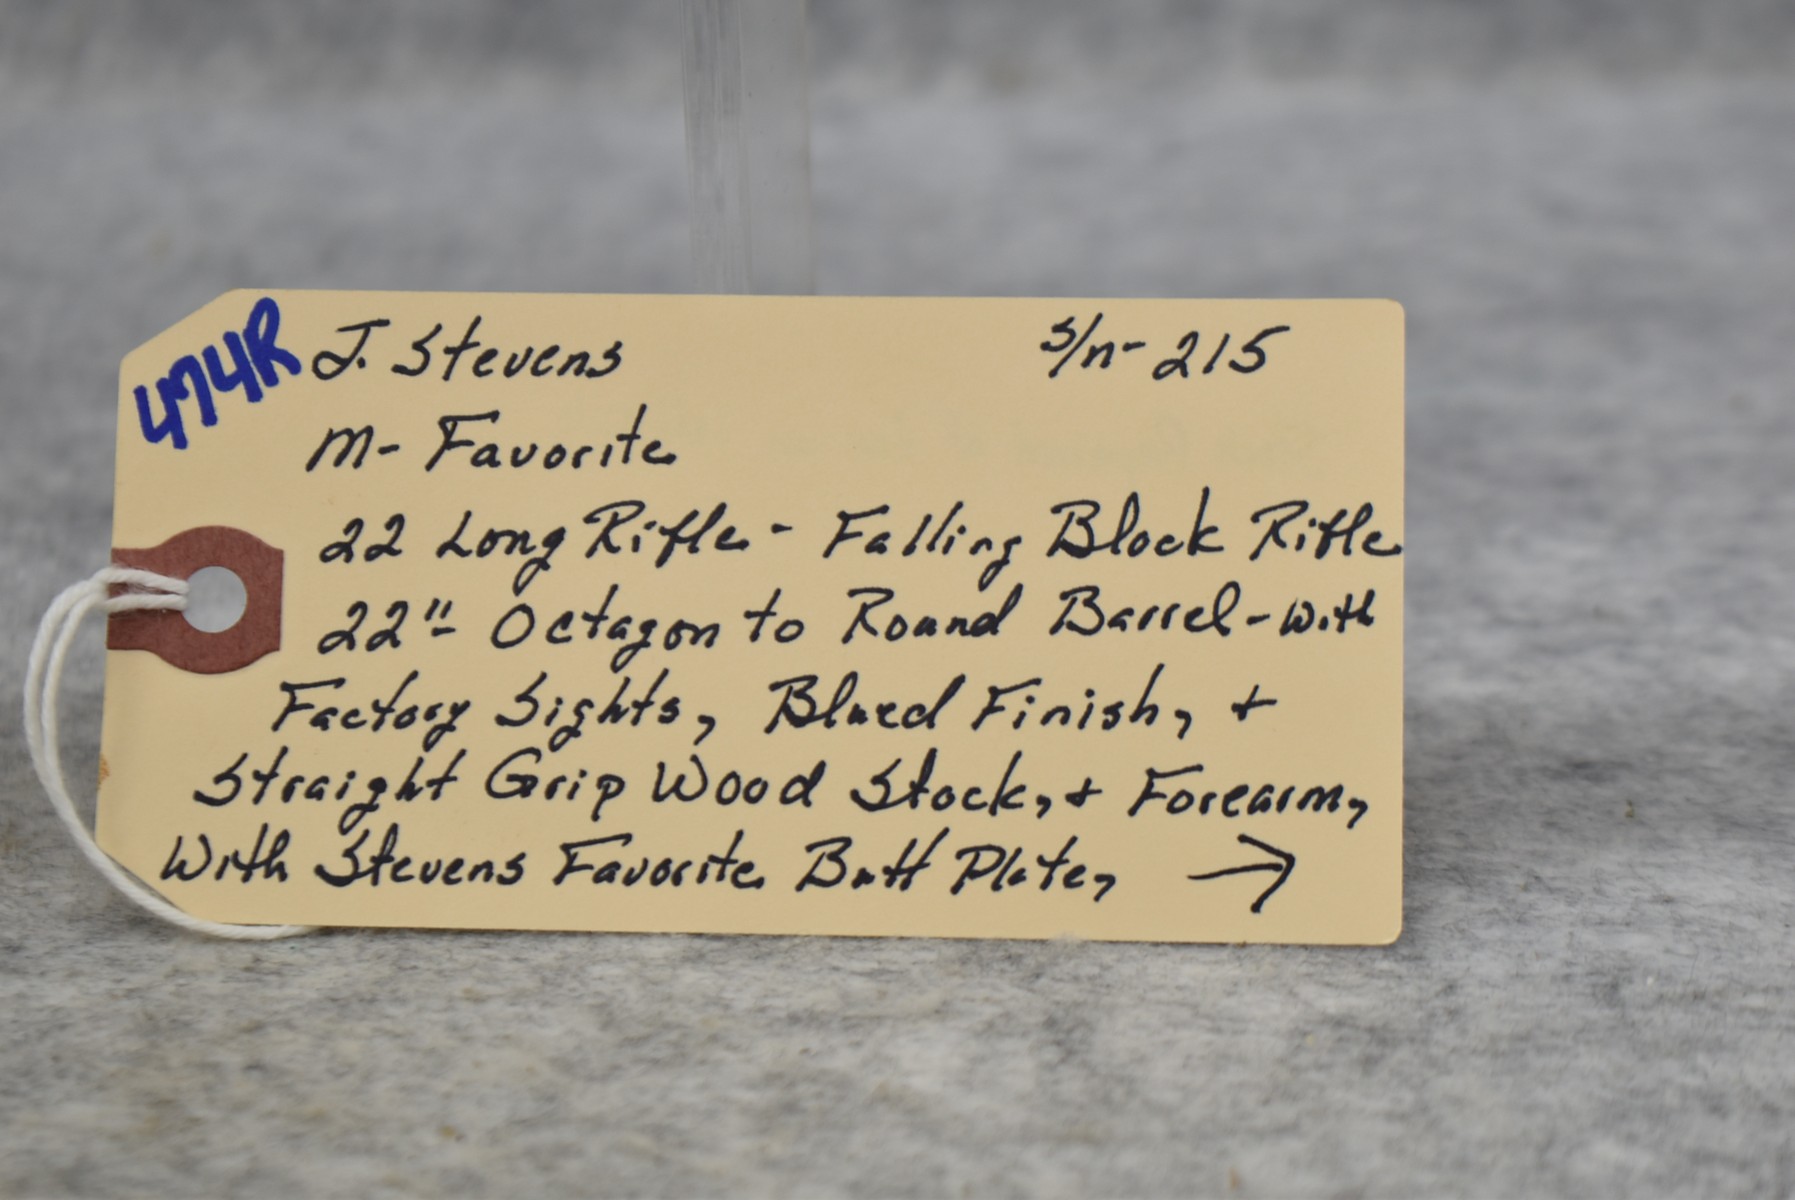 474R
J. Stevens s/n- 215
M- Favorite
22 Long Rifle - Falling Block Rifle
22"- Octagon to Round Barrel - with
Factory Sights, Blued Finish, +
Straight Grip Wood Stock, + Forearm,
With Stevens Favorite Butt Plate, →